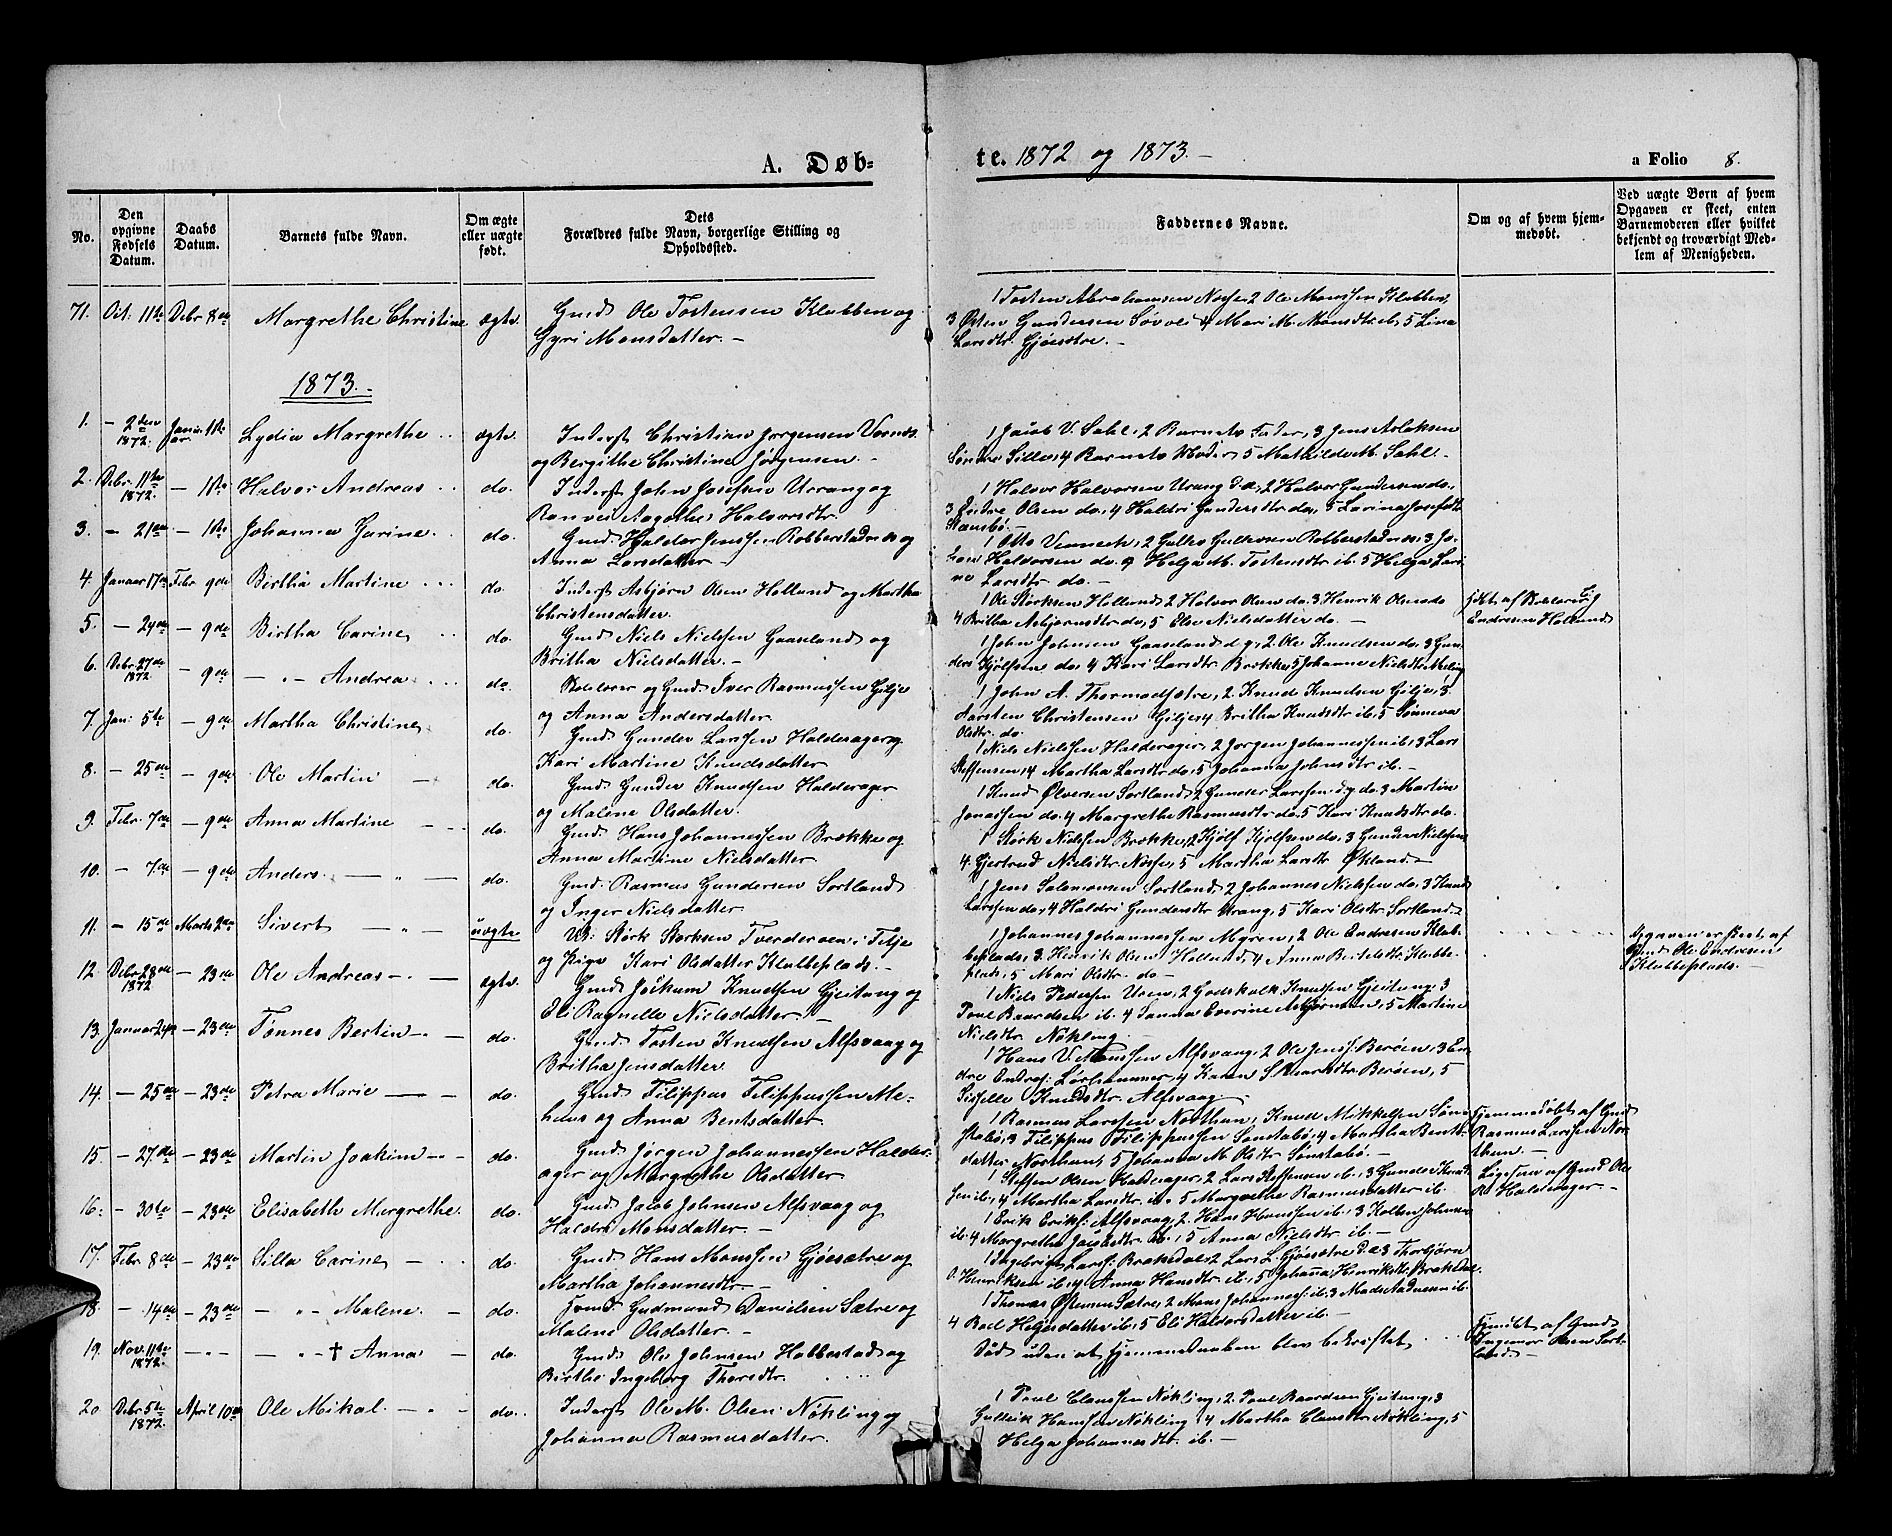 A. Døb-
te. 1872 og 1873.-
a Folio 8.
No.
Den opgivne Fødsels Datum.
Daabs Datum.
Barnets fulde Navn.
Om ægte eller uægte født.
Dets Forældres fulde Navn, borgerlige Stilling og Opholdssted.
Faddernes Navne.
Om og af hvem hjem-
medøbt.
Ved uægte Børn af hvem
Opgaven er skeet, enten
Barnemoderen eller hvilket
bekjendt og troværdigt Med-
lem af Menigheden.
71. Oct. 11te Debr 8de Margrethe Christine ægte. Gmd Ole Tostensen Klubben og
Gyri Monsdatter.-
1 Tosten Abrahamsen Nosse, 2 Ole Monssen Klubben,
3 Østen Gundersen 4 Mari M. Monsdtr ib, 5 Lina
Larsdtr.
1873.-
1. - 2den 1872. Januar 1te Lydia Margrethe ægte. Inderst Christian Jørgensen
og Bergithe Christine Jørgensen.-
1 Jacob V. Sahl, 2 Barnets Fader, 3 Jens Aslaksen
Søndre 4 Barnets Moder 5 Mathilde M. Sahl.-
2. Debr. 11te 1872. - 1te Halvor Andreas do. Inderst John Josefsen Urang og
Ranvei Aagothe Halvorsdtr.
1 Halvor Halvorsen Urang d.æ, 2 Halvor Gundersen do,
3 Olsen do, 4 Haldri Gundersdtr do, 5 Larina Josefsdtr
3. - 21de - 1te Johanna Gurine. do. Gmd. Haldor Jenssen Robberstadnæs og
Anna Larsdatter.-
1 Otto Vennech, 2 Gulleven Robberstadnæs, 3 Jo-
Haldorsen do. 4 Helga M. Tostensdtr ib. 5 Helga Lar-
Larsdtr do.-
4. Januar 17de Febr 9de Birtha Martine do. Inderst Asbjørn Olsen Holland og Martha
Christensdatter.
1 Ole Størksen Holland 2 Halvor Olsen do. 3 Henrik Olsen do
4 Britha Asbjørnsdtr do, 5 Eli Nielsdatter do.-
hdbt af
Endresen Holland
5. - 24de - 9de Birtha Carine do. Gmd Niels Nielsen Gaasland og
Britha Nielsdatter.-
1 John Johnsen Gaasland d.y, 2 Ole Knudsen do, 3 Gun-
ders Kjølfsen do, 4 Kari Larsdtr. Brække, 5 Johanne Nielsdtr
6. Debr. 27de 1872. - 9de - " - Andrea do. og Gmd Iver Rasmussen Gilje
og Anna Andersdatter.
1 John A. Thormodsætre, 2 Knud Knudsen Gilje, 3
Karsten Christensen Gilje, 4 Britha Knudsdtr ib, 5 Sønneva
Olsdtr. do.
7. Jan: 5te - 9de Martha Christine do. Gmd Gunder Larssen Halderager og
Kari Martine Knudsdatter
1 Niels Nielsen Halderager, 2 Jørgen Johannessen ib, 3 Lars
Steffensen, 4 Martha Larsdtr do, 5 Johanna Johnsdtr ib.-
8. - 25de - 9de Ole Martin - do. Gmd Gunder Knudsen Halderager
og Malene Olsdatter.
1 Knud Ølversen Sortland 2 Gunder Larssen d.y do. 3 Martin
Jonassen do. 4 Margrethe Rasmusdtr do, 5 Kari Knudsdtr do.
9. Febr. 7de - 9de Anna Martine do. Gmd Hans Johannessen Brække og
Anna Martine Nielsdatter
1 Størk Nielsen Brække, 2 Kjølf Kjølfsen do, 3 Gunder Nielsen
4. Gjertrud Nielsdtr Nosse, 5 Martha Larsdtr Økland.-
10. - 7de - 9de Anders - " - do. Gmd. Rasmus Gundersen Sortland
og Inger Nielsdatter
1 Jens Salomonsen Sortland, 2 Johannes Nielsen do, 3 Knud
Larssen do, 4 Haldri Gundersdtr Urang, 5 Kari Olsdtr Sortland
11. - 15de Marts 2den Sivert - " - uægte Størk Størksen Tverderøen i Fitje
og Pige Kari Olsdatter Klubbeplads.-
1 Johannes Johannessen Myren, 2 Ole Endresen Klub-
beplads, 3. Henrik Olsen Holland, 4 Anna Bertelsdtr Klubbe-
plads, 5 Mari Olsdtr. do-
Opgaven er skeet af
Gmd Ole Endresen
Klubbeplads.-
12. Debr. 28de 1872 - 23de Ole Andreas ægte. Gmd Jockum Knudsen Gjeitung og
Eli Ragnelle Nielsdatter.-
1 Niels Pedersen Uren, 2 Godskalk Knudsen Gjeitung, 3
Povl Baardsen ib. 4 Sanna Everine Asbjørnsen, 5 Martine
Nielsdtr Nøkling
13. Januar - 23de Tønnes Bertin do. Gmd Tosten Knudsen Alfsvaag og
Britha Jensdatter.
1 Hans V. Alfsvaag, 2 Ole Jenss: Berøen, 3 En-
dre Endres: Lørhammer, 4 Karen Berøen, 5
Siselle Knudsdtr. Alfsvaag.
14. - 25de - 23de Petra Marie do. Gmd Filippus Filippussen Me-
huus og Anna Bentsdatter.
1 Rasmus Larssen Northun, Knud Mikkelsen Søn-
stabø, 3 Filippus Filippussen Sønstabø, 4 Martha Bents-
datter Northun, 5 Johanna M. Olsdtr Sønstabø.
Hjemmedøbt af Gmd
Rasmus Larssen Nor-
thun.-
15. - 27de - 23de Martin Joakim do. Gmd Jørgen Johannessen Halder-
ager og Margrethe Olsdatter
1 Steffen Olsen Halderager, 2 Lars Steffensen ib. 3 Gunder Knud-
sen ib, 4 Martha Larsdtr. ib. 5 Margrethe Rasmusdatter ib.
Ligesaa af Gmd Ole
R. Halderager.-
16. - 30te - 23de Elisabeth Margrethe. do. Gmd Jacob Johnsen Alfsvaag og
Haldri Monsdatter.-
1 Erik Eriks: Alfsvaag, 2. Hans Hanssen ib, 3 Kolben Johnsen
ib. 4 Margrethe Jacobsdtr ib, 5 Anna Nielsdtr ib.-
17. Febr. 8de - 23de Silla Carine do. Gmd Hans Monssen Gjøsætre og
Martha Johannesdtr-
1 Ingebrigt Larss: Brakedal 2 Lars L. Gjøsætre d.æ 3 Thorbjørn
O. Henriksen ib, 4 Anna Hansdtr ib, 5 Johanna Henriksdtr Brakedal
18. - 14de - 23de - " - Malene. do. Gmd Gudmund Danielsen Sætre og
Malene Olsdatter.-
1 Thomas Østensen Sætre, 2 Mons Johanness: ib. 3 Mads Andersen ib.
4 Boel Helgesdatter ib, 5 Eli Haldorsdatter ib.-
19. Nov. 11te 1872. - " - - " - † Anna do. Gmd Ole Johnsen Hobbestad og
Birthe Ingeborg Thorsdtr.
Død uden at Hjemmedaaben blev bekræftet
Hjmdbt af Gmd
Ingemar Olsen Sort-
land-
20 Debr 5te 1872. April 10de Ole Mikal do. Inderst Ole M. Olsen Nøkling og
Johanna Rasmusdatter.
1 Povl Clausen Nøkling, 2 Povl Baardsen Gjeitung, 3
Gullvik Hanssen Nøkling 4 Martha Clausdtr Nøkling, 5
Helga Johannesdtr. ib.-